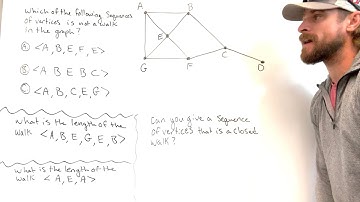 which of the following sequences
of vertices is not a walk
in the graph?
A <A, B, E, F, E>
B <A B E B C>
C <A, B, C, E, G>
what is the length of the
walk <A, B, E, G, E, B>
what is the length of the
walk <A, E, A>
A
B
E
G
F
C
D
Can you give a sequence
of vertices that is a closed
walk?